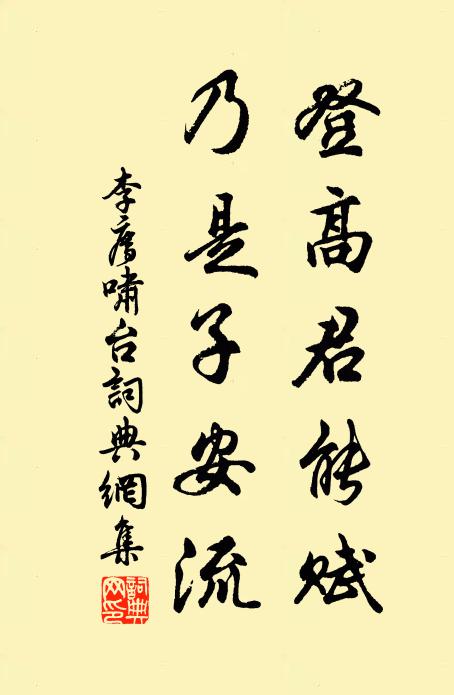 登高君能賦
乃是子安流
李廌嘯台詞典網集
詞典网印